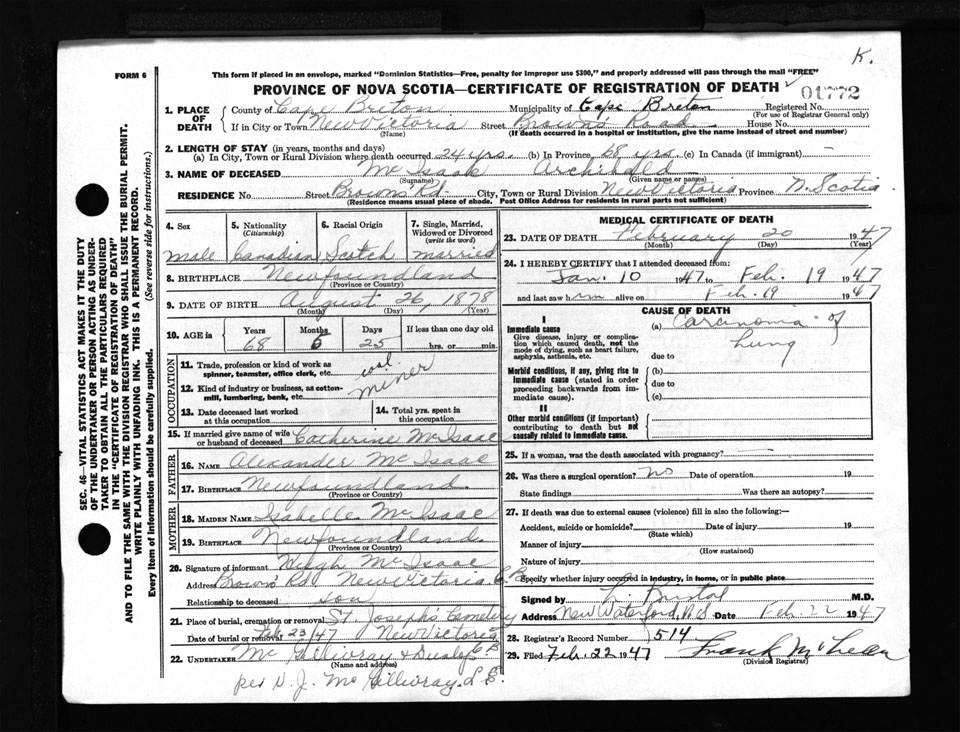 K.
FORM 6
This form if placed in an envelope, marked "Dominion Statistics—Free, penalty for improper use $300," and properly addressed will pass through the mail "FREE"
PROVINCE OF NOVA SCOTIA—CERTIFICATE OF REGISTRATION OF DEATH
01772
1. PLACE OF DEATH
County of Cape Breton Municipality of Cape Breton Registered No.
(For use of Registrar General only)
If in City or Town New Victoria Street Browns Road House No.
(Name) (If death occurred in a hospital or institution, give the name instead of street and number)
2. LENGTH OF STAY (in years, months and days)
(a) In City, Town or Rural Division where death occurred 24 yrs. (b) In Province 68 yrs. (c) In Canada (if immigrant) —
3. NAME OF DECEASED Mc Isaac Archibald
(Surname) (Given name or names)
RESIDENCE No. Street Browns Rd. City, Town or Rural Division New Victoria Province N. Scotia
(Residence means usual place of abode. Post Office Address for residents in rural parts not sufficient)
4. Sex
male
5. Nationality
(Citizenship)
Canadian
6. Racial Origin
Scotch
7. Single, Married, Widowed or Divorced
(write the word)
married
8. BIRTHPLACE Newfoundland
(Province or Country)
9. DATE OF BIRTH August 26, 1878
(Month) (Day) (Year)
10. AGE in
Years Months Days If less than one day old
68 5 25 hrs. or min.
OCCUPATION
11. Trade, profession or kind of work as
spinner, teamster, office clerk, etc. coal
12. Kind of industry or business, as cotton-
mill, lumbering, bank, etc. miner
13. Date deceased last worked
at this occupation
14. Total yrs. spent in
this occupation
15. If married give name of wife
or husband of deceased Catherine McIsaac
FATHER
16. NAME Alexander Mc Isaac
17. BIRTHPLACE Newfoundland
(Province or Country)
MOTHER
18. MAIDEN NAME Isabelle Mc Isaac
19. BIRTHPLACE Newfoundland
(Province or Country)
20. Signature of informant Hugh Mc Isaac
Address Browns Rd New Victoria C.B
Relationship to deceased son
21. Place of burial, cremation or removal St. Joseph's Cemetery
Date of burial or removal Feb 23/47 New Victoria
C B
22. UNDERTAKER Mc Gillivray &
(Name and address)
per N. J. Mc Gillivray.
MEDICAL CERTIFICATE OF DEATH
23. DATE OF DEATH February 20 1947
(Month) (Day) (Year)
24. I HEREBY CERTIFY that I attended deceased from:
Jan. 10 1947 to Feb. 19 1947
and last saw him alive on Feb. 19 1947
CAUSE OF DEATH
I
Immediate cause
Give disease, injury or complica-
tion which caused death, not the
mode of dying, such as heart failure,
asphyxia, asthenia, etc.
(a) Carcinoma of
Lung
due to
Morbid conditions, if any, giving rise to
immediate cause (stated in order
proceeding backwards from im-
mediate cause).
(b)
due to
(c)
II
Other morbid conditions (if important)
contributing to death but not
causally related to immediate cause.
25. If a woman, was the death associated with pregnancy? —
26. Was there a surgical operation? no Date of operation 19
State findings Was there an autopsy?
27. If death was due to external causes (violence) fill in also the following:—
Accident, suicide or homicide? Date of injury 19
(State which)
Manner of injury
(How sustained)
Nature of injury
Specify whether injury occurred in industry, in home, or in public place
Signed by Bristol M.D.
Address New Waterford, N.S Date Feb. 22 1947
28. Registrar's Record Number 514
29. Filed Feb. 22 1947 Frank McLean
(Division Registrar)
SEC. 46—VITAL STATISTICS ACT MAKES IT THE DUTY
OF THE UNDERTAKER OR PERSON ACTING AS UNDER-
TAKER TO OBTAIN ALL THE PARTICULARS REQUIRED
IN THE "CERTIFICATE OF REGISTRATION OF DEATH"
AND TO FILE THE SAME WITH THE DIVISION REGISTRAR WHO SHALL ISSUE THE BURIAL PERMIT.
WRITE PLAINLY WITH UNFADING INK. THIS IS A PERMANENT RECORD.
Every item of Information should be carefully supplied. (See reverse side for instructions.)